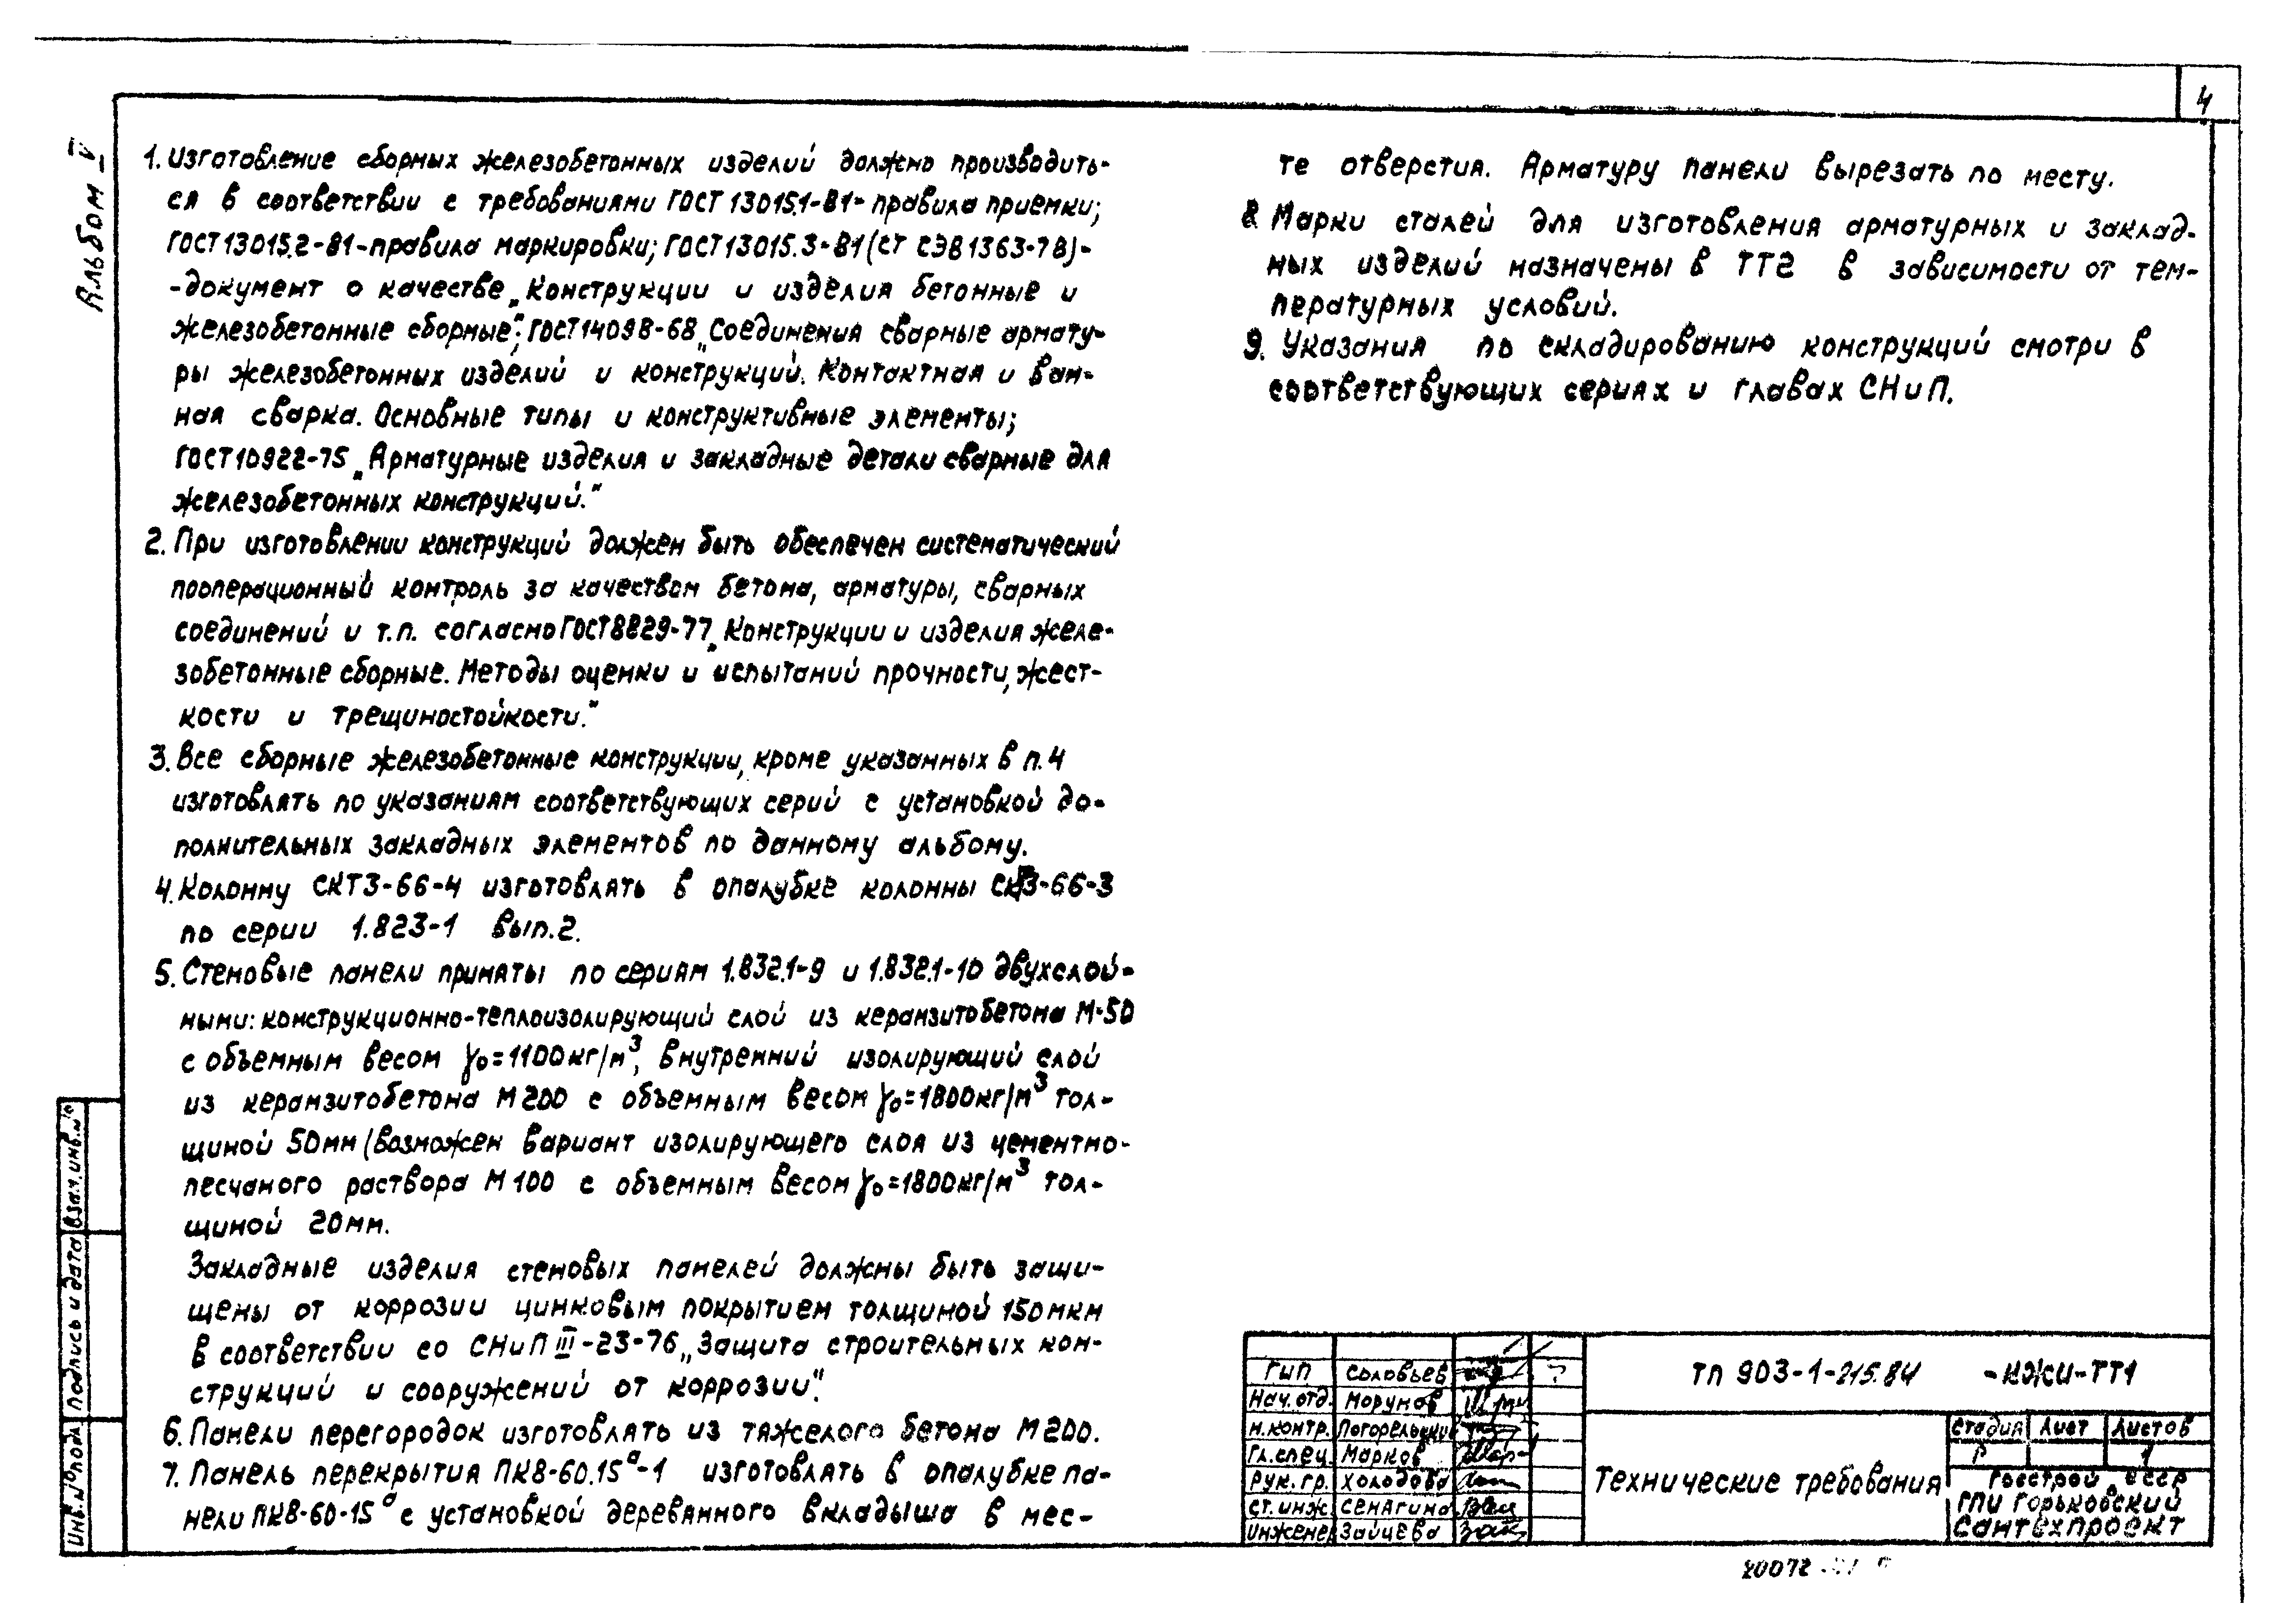 4
Альбом V
1. Изготовление сборных железобетонных изделий должно производить-
ся в соответствии с требованиями ГОСТ 13015.1-81- правила приемки;
ГОСТ 13015.2-81-правила маркировки; ГОСТ 13015.3-81 (СТ СЭВ 1363-78)-
-документ о качестве „Конструкции и изделия бетонные и
железобетонные сборные"; ГОСТ 14098-68 „Соединения сварные армату-
ры железобетонных изделий и конструкций. Контактная и ван-
ная сварка. Основные типы и конструктивные элементы;
ГОСТ 10922-75 „Арматурные изделия и закладные детали сварные для
железобетонных конструкций."
2. При изготовлении конструкций должен быть обеспечен систематический
пооперационный контроль за качеством бетона, арматуры, сварных
соединений и т.п. согласно ГОСТ 8829-77 „Конструкции и изделия желе-
зобетонные сборные. Методы оценки и испытаний прочности, жест-
кости и трещиностойкости."
3. Все сборные железобетонные конструкции, кроме указанных в п.4
изготовлять по указаниям соответствующих серий с установкой до-
полнительных закладных элементов по данному альбому.
4. Колонну СКТ3-66-4 изготовлять в опалубке колонны
по серии 1.823-1 вып.2.
5. Стеновые панели приняты по сериям 1.832.1-9 и 1.832.1-10 двухслой-
ными: конструкционно-теплоизолирующий слой из керамзитобетона М-50
с объемным весом γ₀=1100кг/м³, внутренний изолирующий слой
из керамзитобетона М200 с объемным весом γ₀=1800кг/м³ тол-
щиной 50мм (возможен вариант изолирующего слоя из цементно-
песчаного раствора М100 с объемным весом γ₀=1800кг/м³ тол-
щиной 20мм.
Закладные изделия стеновых панелей должны быть защи-
щены от коррозии цинковым покрытием толщиной 150мкм
в соответствии со СНиП III-23-76 „Защита строительных кон-
струкций и сооружений от коррозии".
6. Панели перегородок изготовлять из тяжелого бетона М200.
7. Панель перекрытия ПК8-60.15ᵃ-1 изготовлять в опалубке па-
нели ПК8-60-15ᵃ с установкой деревянного вкладыша в мес-
те отверстия. Арматуру панели вырезать по месту.
8. Марки сталей для изготовления арматурных и заклад-
ных изделий назначены в ТТ2 в зависимости от тем-
пературных условий.
9. Указания по складированию конструкций смотри в
соответствующих сериях и главах СНиП.
Взам.инв.№
Подпись и дата
Инв.№ подл.
ГИП Соловьев
Нач.отд. Морунов
Н.контр. Погорельский
Гл.спец. Марков
Рук.гр. Холодова
Ст.инж. Сенягина
Инженер Зайцева
ТП 903-1-215.84 -КЖИ-ТТ1
Технические требования
Стадия Лист Листов
Р 1
Госстрой СССР
ГПИ Горьковский
Сантехпроект
20072